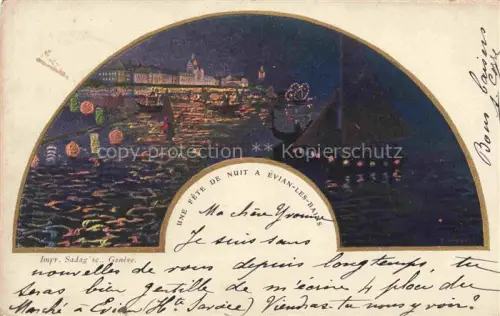 UNE FÊTE DE NUIT A ÉVIAN-LES-BAINS
copyright-protection Kupferschutz
Impr. Sadag sc., Genève.
Ma chère Yvonne
Je suis sans
nouvelles de vous depuis longtemps tu
seras bien gentille de m'écrire 4 place du
Marché à Evian (Hte Savoie) Viendras-tu nous y voir?
Bons baisers